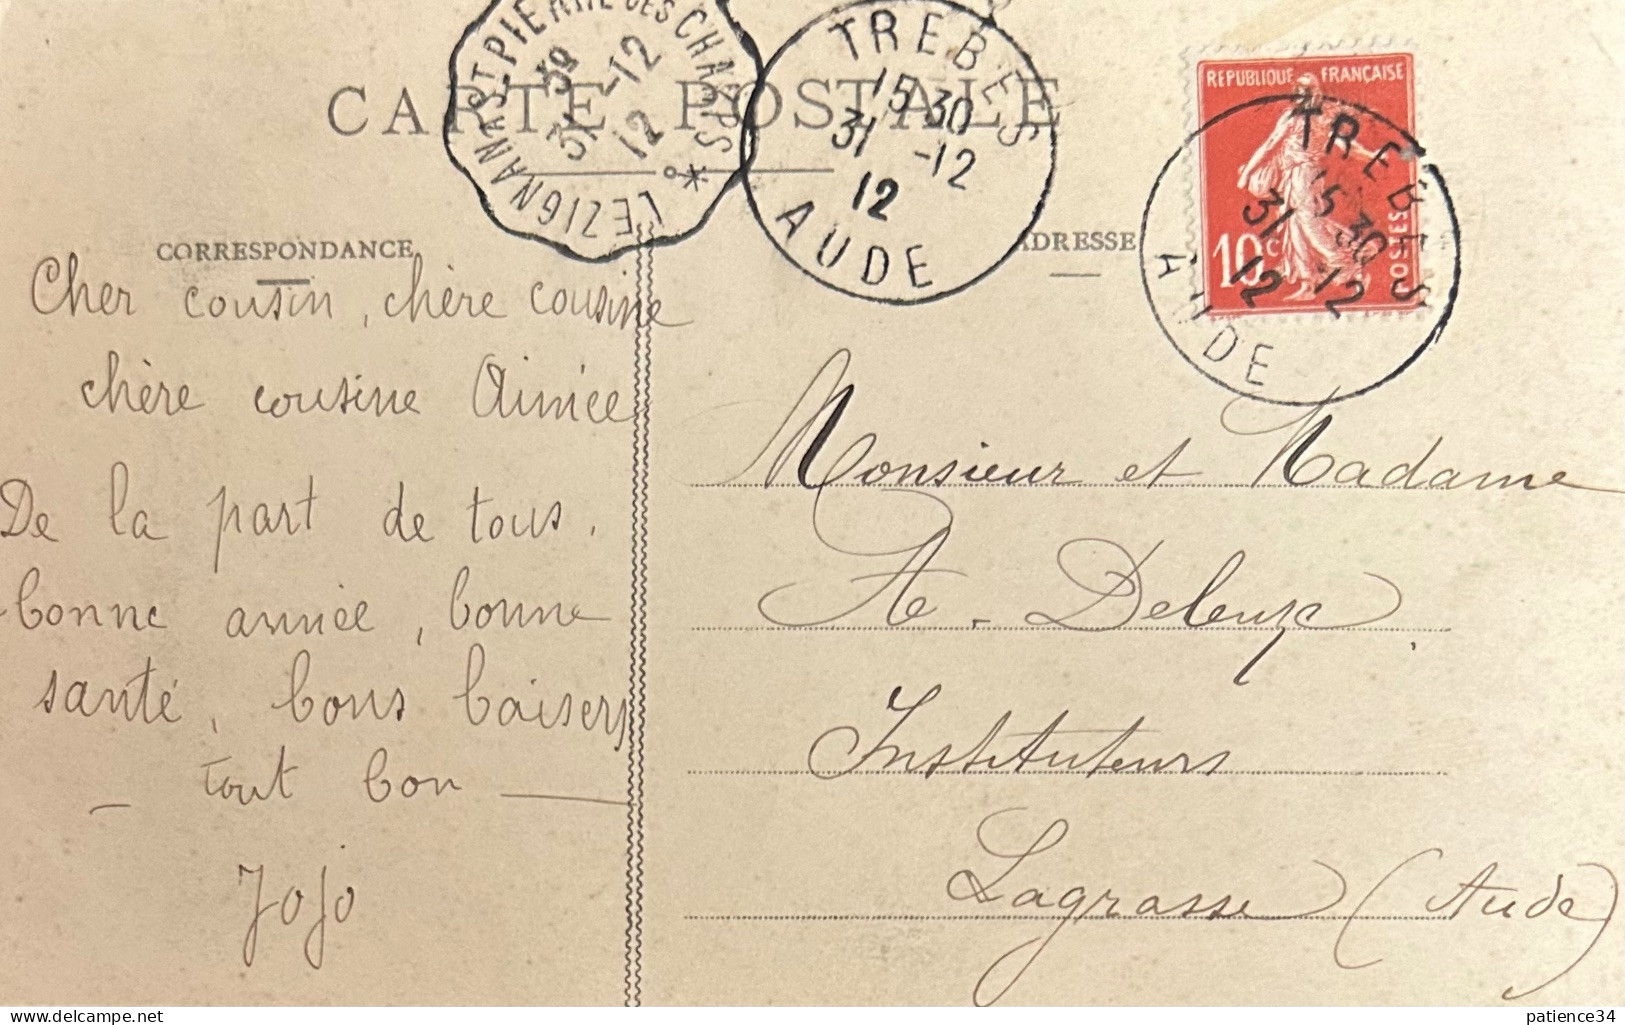 CARTE POSTALE
LEZIGNAN A ST PIERRE DES CHAMPS
3º
31 -12
12
TREBES
15 30
31 -12
12
AUDE
REPUBLIQUE FRANÇAISE
10c
POSTES
TREBES
15 30
31 12
12
AUDE
CORRESPONDANCE
ADRESSE
Cher cousin, chère cousine
chère cousine Aimée
De la part de tous,
bonne année, bonne
santé, bons baisers
tout bon
Jojo
Monsieur et Madame
A. Deleuze
Instituteurs
Lagrasse (Aude)
delcampe.net
patience34